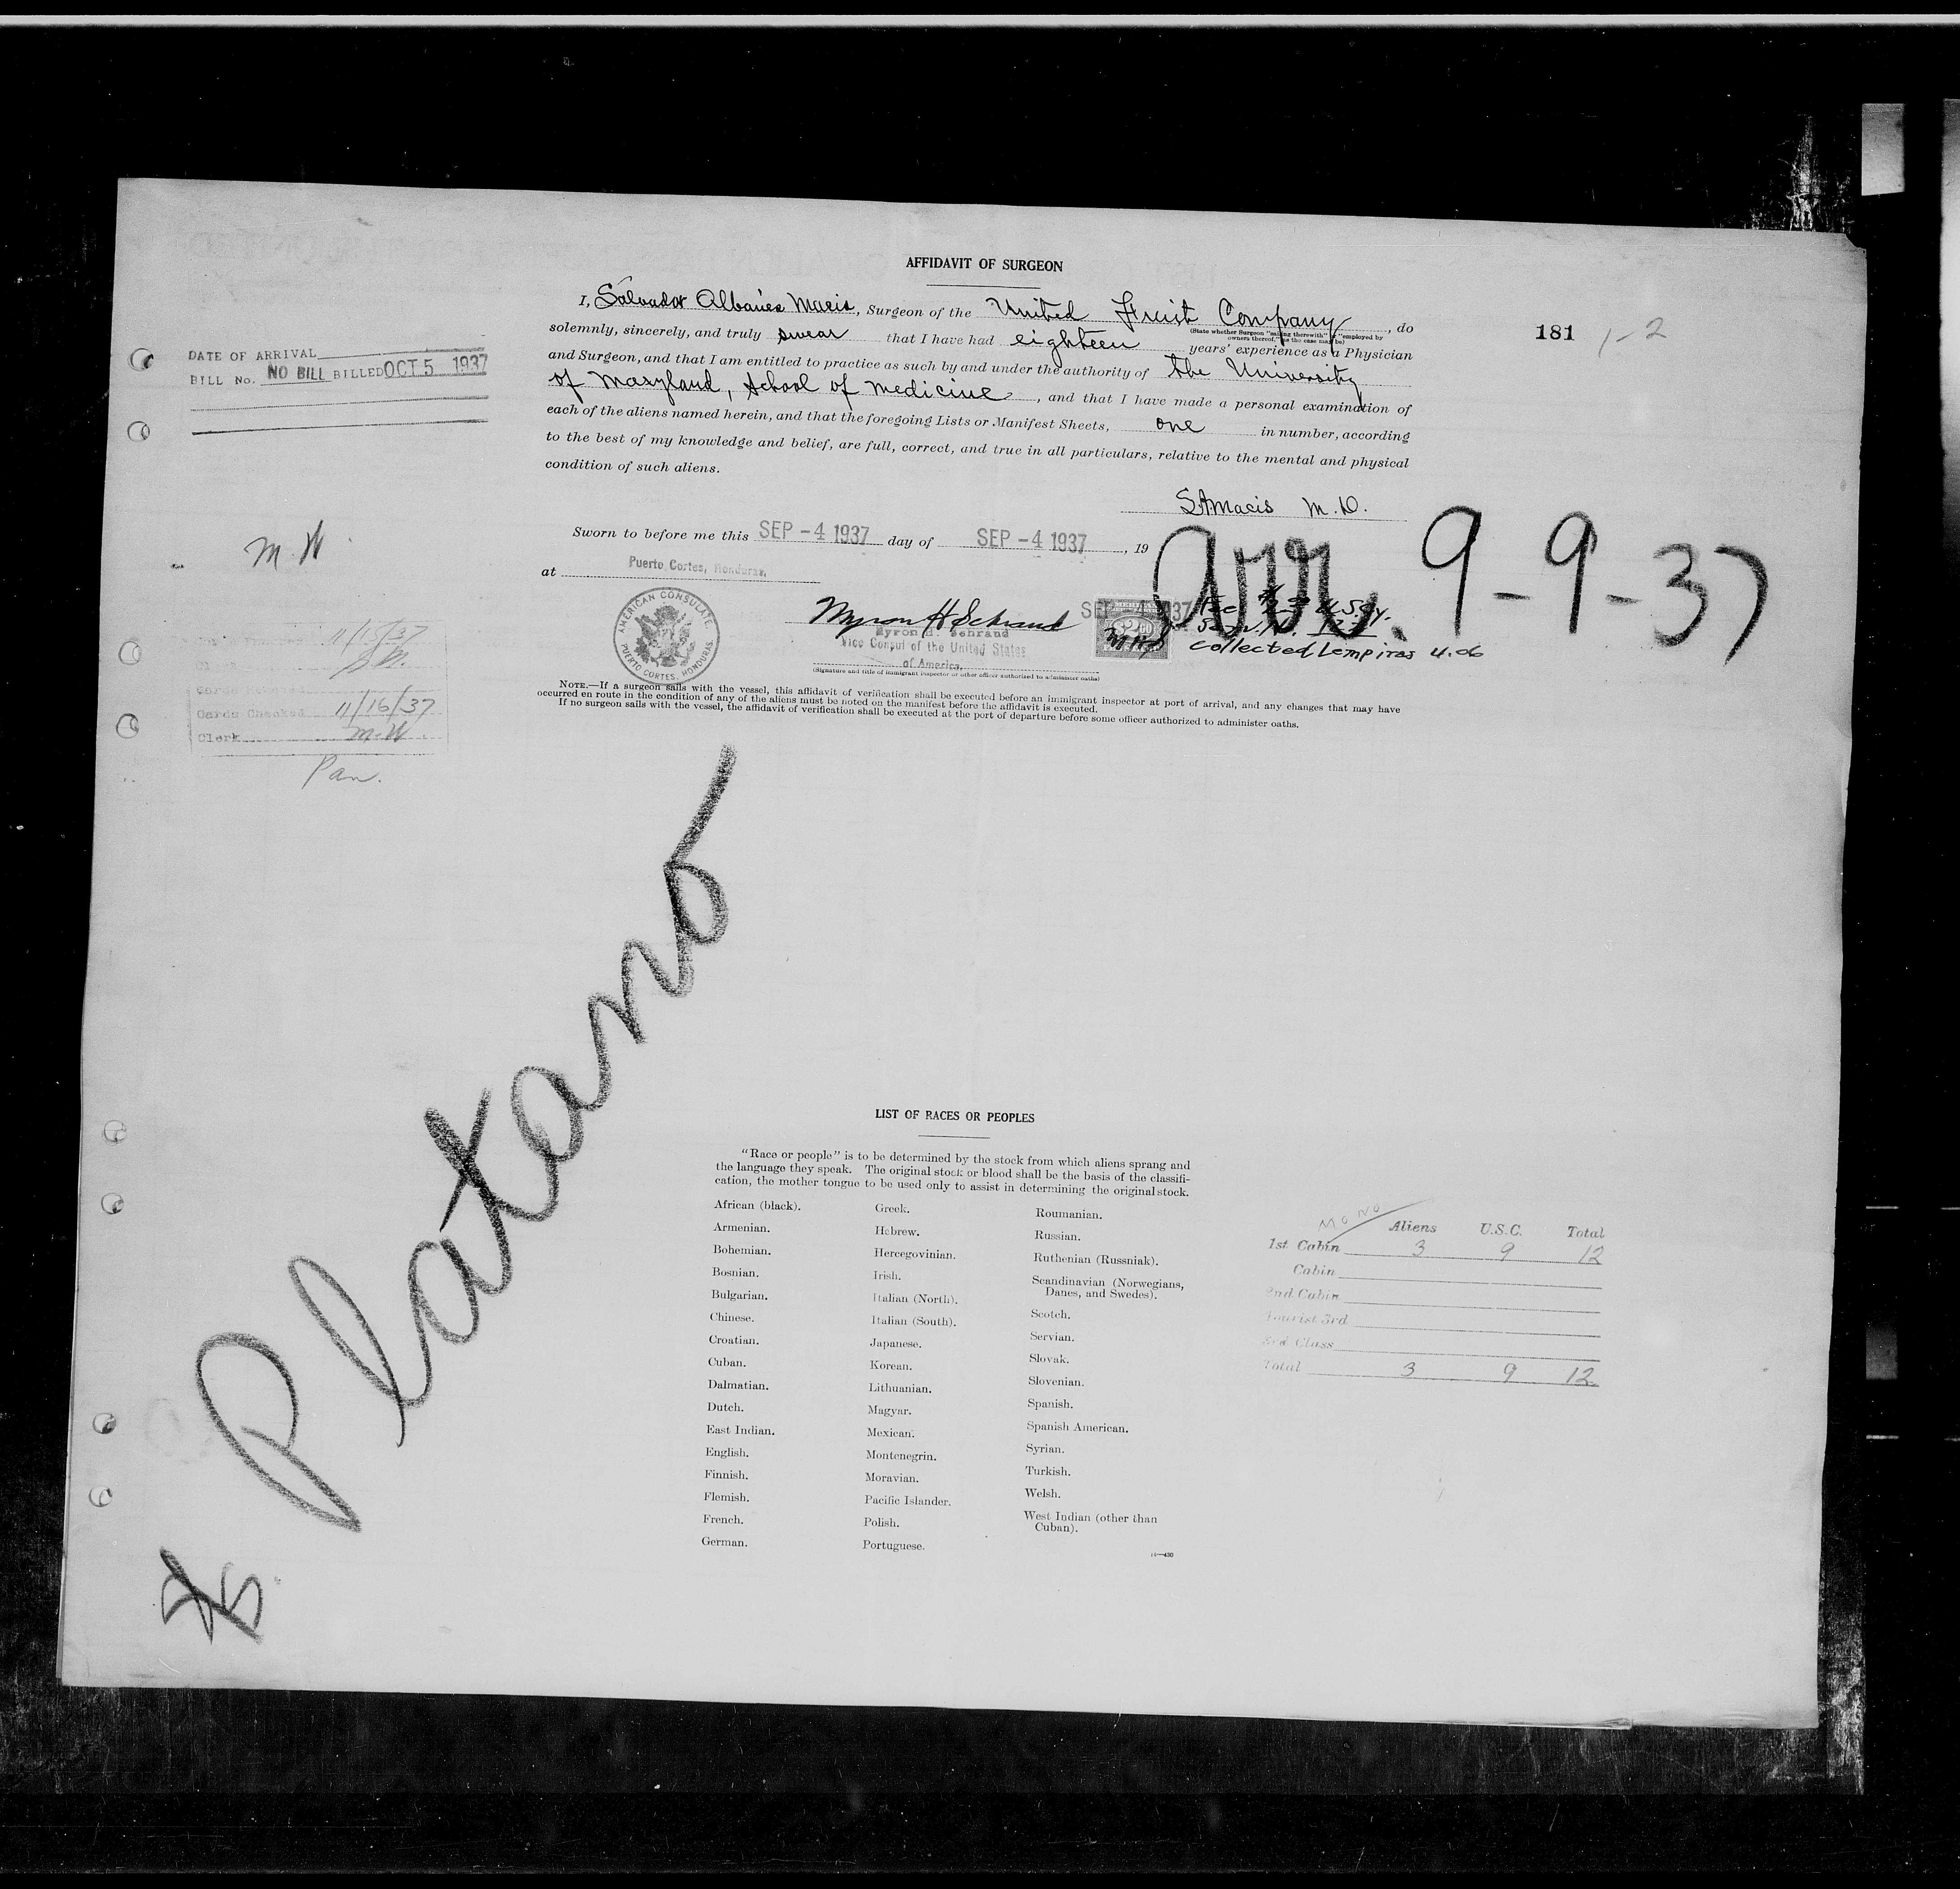 AFFIDAVIT OF SURGEON
181 1-2
I, Salvador Albanés Macis, Surgeon of the United Fruit Company, do
(State whether Surgeon "sailing therewith" or "employed by owners thereof," as the case may be)
solemnly, sincerely, and truly swear that I have had eighteen years' experience as a Physician
and Surgeon, and that I am entitled to practice as such by and under the authority of the University
of Maryland, School of Medicine, and that I have made a personal examination of
each of the aliens named herein, and that the foregoing Lists or Manifest Sheets, one in number, according
to the best of my knowledge and belief, are full, correct, and true in all particulars, relative to the mental and physical
condition of such aliens.
DATE OF ARRIVAL
BILL No. NO BILL BILLED OCT 5 1937
S A Macis M.D.
Sworn to before me this SEP -4 1937 day of SEP -4 1937, 19
at Puerto Cortes, Honduras.
Arr. 9-9-37
M. W.
AMERICAN CONSULATE
PUERTO CORTES, HONDURAS.
Myron H Schrand
Myron H. Schrand
Vice Consul of the United States
of America.
(Signature and title of immigrant inspector or other officer authorized to administer oaths)
collected Lempiras 4.06
11/15/37
Cards Checked 11/16/37
Clerk M. W.
Pan.
NOTE.—If a surgeon sails with the vessel, this affidavit of verification shall be executed before an immigrant inspector at port of arrival, and any changes that may have
occurred en route in the condition of any of the aliens must be noted on the manifest before the affidavit is executed.
If no surgeon sails with the vessel, the affidavit of verification shall be executed at the port of departure before some officer authorized to administer oaths.
Platano
LIST OF RACES OR PEOPLES
"Race or people" is to be determined by the stock from which aliens sprang and
the language they speak. The original stock or blood shall be the basis of the classifi-
cation, the mother tongue to be used only to assist in determining the original stock.
African (black).
Armenian.
Bohemian.
Bosnian.
Bulgarian.
Chinese.
Croatian.
Cuban.
Dalmatian.
Dutch.
East Indian.
English.
Finnish.
Flemish.
French.
German.
Greek.
Hebrew.
Hercegovinian.
Irish.
Italian (North).
Italian (South).
Japanese.
Korean.
Lithuanian.
Magyar.
Mexican.
Montenegrin.
Moravian.
Pacific Islander.
Polish.
Portuguese.
Roumanian.
Russian.
Ruthenian (Russniak).
Scandinavian (Norwegians,
Danes, and Swedes).
Scotch.
Servian.
Slovak.
Slovenian.
Spanish.
Spanish American.
Syrian.
Turkish.
Welsh.
West Indian (other than
Cuban).
MONO
Aliens U.S.C. Total
1st Cabin 3 9 12
Cabin
2nd Cabin
Tourist 3rd
3rd Class
Total 3 9 12